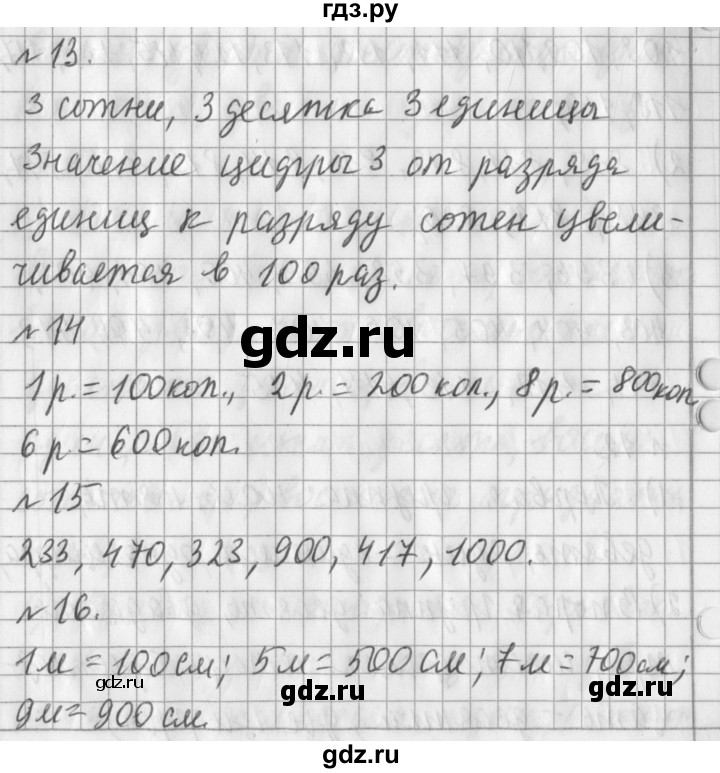 гдз.ру
№13.
3 сотни, 3 десятка 3 единицы
Значение цифры 3 от разряда
единиц к разряду сотен увели-
чивается в 100 раз.
№14
gdz.ru
1 р. = 100 коп., 2 р. = 200 коп., 8 р. = 800 коп
6 р = 600 коп.
№15
233, 470, 323, 900, 417, 1000.
№16.
1 м = 100 см; 5 м = 500 см; 7 м = 700 см;
gdz.ru gdz.ru gdz.ru
9 м = 900 см.
gdz.ru